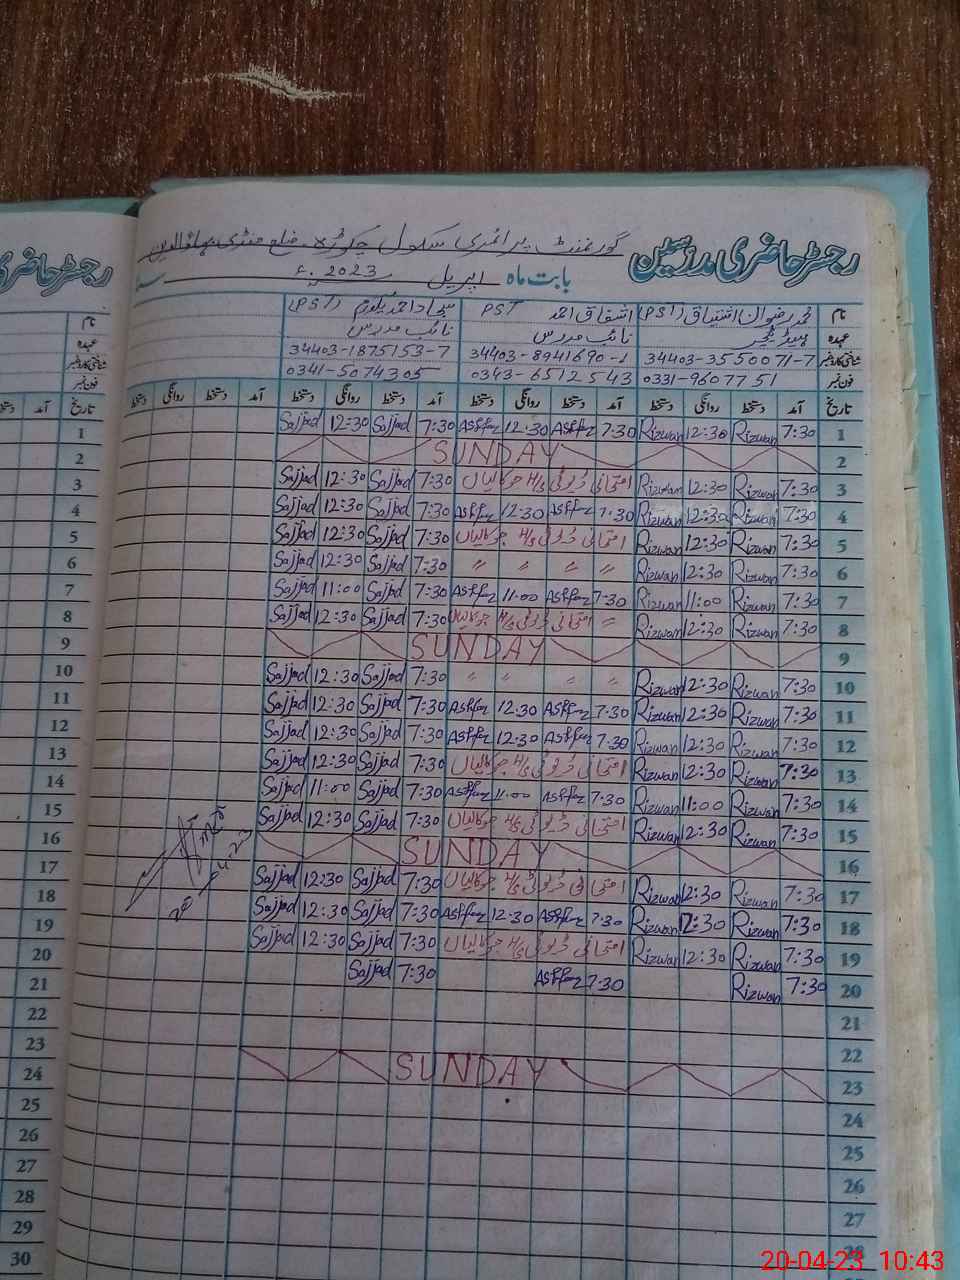 رجسٹر حاضری مدرسین گورنمنٹ پرائمری سکول چکوڑہ ضلع منڈی بہاؤالدین
بابت ماہ اپریل 2023ء
نام محمد رضوان اشتیاق (PST) اشفاق احمد PST سجاد احمد (PST)
عہدہ ہیڈ ٹیچر نائب مدرس نائب مدرس
شناختی کارڈ نمبر 34403-3550071-7 34403-8941690-1 34403-1875153-7
فون نمبر 0331-9607751 0343-6512543 0341-5074305
تاریخ آمد دستخط روانگی دستخط آمد دستخط روانگی دستخط آمد دستخط روانگی دستخط آمد دستخط روانگی دستخط
1 7:30 Rizwan 12:30 Rizwan 7:30 Ashfaq 12:30 Ashfaq 7:30 Sajjad 12:30 Sajjad
2 SUNDAY
3 7:30 Rizwan 12:30 Rizwan امتحانی ڈیوٹی H/S جوکالیاں 7:30 Sajjad 12:30 Sajjad
4 7:30 Rizwan 12:30 Rizwan 7:30 Ashfaq 12:30 Ashfaq 7:30 Sajjad 12:30 Sajjad
5 7:30 Rizwan 12:30 Rizwan امتحانی ڈیوٹی H/S جوکالیاں 7:30 Sajjad 12:30 Sajjad
6 7:30 Rizwan 12:30 Rizwan 〃 〃 〃 〃 7:30 Sajjad 12:30 Sajjad
7 7:30 Rizwan 11:00 Rizwan 7:30 Ashfaq 11:00 Ashfaq 7:30 Sajjad 11:00 Sajjad
8 7:30 Rizwan 12:30 Rizwan 〃 امتحانی ڈیوٹی H/S جوکالیاں 7:30 Sajjad 12:30 Sajjad
9 SUNDAY
10 7:30 Rizwan 12:30 Rizwan 〃 〃 〃 〃 7:30 Sajjad 12:30 Sajjad
11 7:30 Rizwan 12:30 Rizwan 7:30 Ashfaq 12:30 Ashfaq 7:30 Sajjad 12:30 Sajjad
12 7:30 Rizwan 12:30 Rizwan 7:30 Ashfaq 12:30 Ashfaq 7:30 Sajjad 12:30 Sajjad
13 7:30 Rizwan 12:30 Rizwan امتحانی ڈیوٹی H/S جوکالیاں 7:30 Sajjad 12:30 Sajjad
14 7:30 Rizwan 11:00 Rizwan 7:30 Ashfaq 11:00 Ashfaq 7:30 Sajjad 11:00 Sajjad
15 7:30 Rizwan 12:30 Rizwan امتحانی ڈیوٹی H/S جوکالیاں 7:30 Sajjad 12:30 Sajjad
16 SUNDAY
17 7:30 Rizwan 12:30 Rizwan امتحانی ڈیوٹی H/S جوکالیاں 7:30 Sajjad 12:30 Sajjad
18 7:30 Rizwan 12:30 Rizwan 7:30 Ashfaq 12:30 Ashfaq 7:30 Sajjad 12:30 Sajjad
19 7:30 Rizwan 12:30 Rizwan امتحانی ڈیوٹی H/S جوکالیاں 7:30 Sajjad 12:30 Sajjad
20 7:30 Rizwan 7:30 Ashfaq 7:30 Sajjad
21
22
23 SUNDAY
24
25
26
27
28
رجسٹر حاضری
نام
عہدہ
شناختی کارڈ نمبر
فون نمبر
تاریخ آمد دستخط
1
2
3
4
5
6
7
8
9
10
11
12
13
14
15
16
17
18
19
20
21
22
23
24
25
26
27
28
29
30
20-04-23 10:43